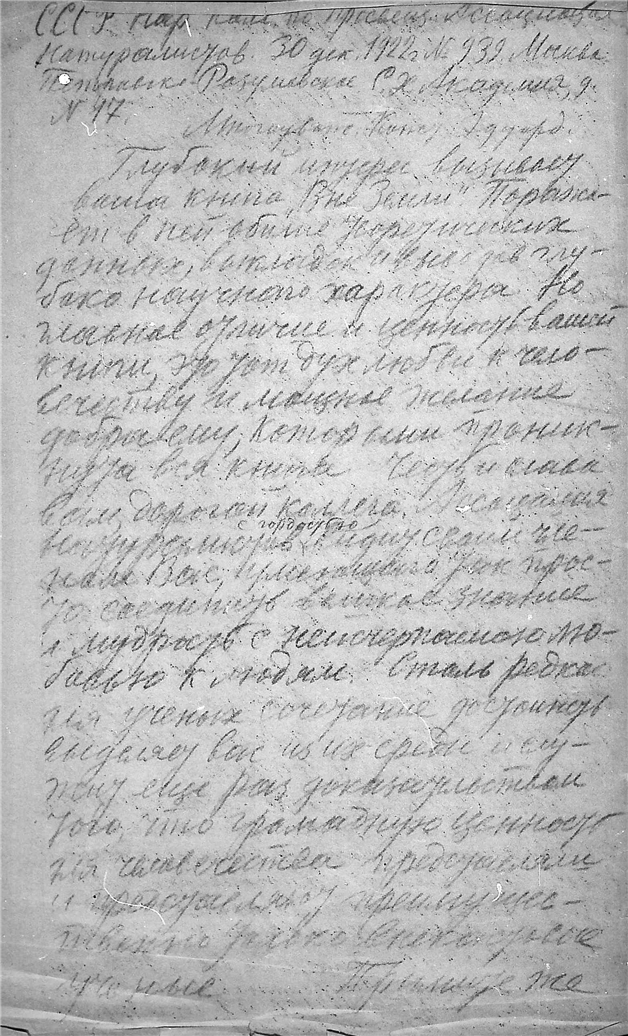 СССР. Нар. Ком. по просвещ. Ассоциация
натуралистов. 30 дек. 1922 г. № 939. Москва.
Петровско-Разумовское С.Х. Академия, д.
№ 47
Многоуваж. Конст. Эдуард.
Глубокий интерес вызывает
ваша книга „Вне Земли" Поража-
ет в ней обилие теоретических
данных, выкладок глу-
боко научного характера. Но
главное отличие и ценность вашей
книги, это тот дух любви к чело-
вечеству и мощное желание
добра ему, которыми проник-
нута вся книга. Честь и слава
вам, дорогой коллега. Ассоциация
натуралистов с гордостью
Вас, умеющего так прос-
то соединить великое знание
и мудрость с неисчерпаемою лю-
бовью к людям. Столь редкое
для ученых сочетание достоинств
выделяет вас из их среды и слу-
жит еще раз доказательством
того, что громадную ценность
для человечества представляли
и представляют преимущес-
твенно только внекастовые
ученые. Примите же